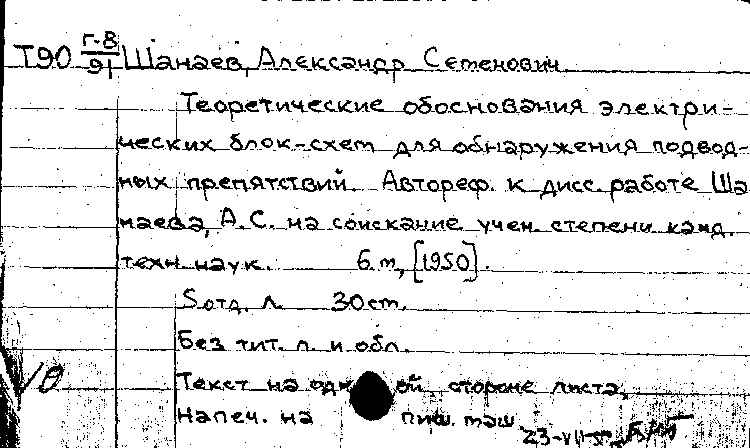 Т90 Г-В/91 Шанаев, Александр Семенович.
Теоретические обоснования электри-
ческих блок-схем для обнаружения подвод-
ных препятствий. Автореф. к дисс. работе Ша
наева, А.С. на соискание учен. степени канд.
техн. наук. б.м, [1950].
5 отд. л. 30 ст.
Без тит. л. и обл.
Текст на одн ой стороне листа,
Напеч. на пиш. маш.